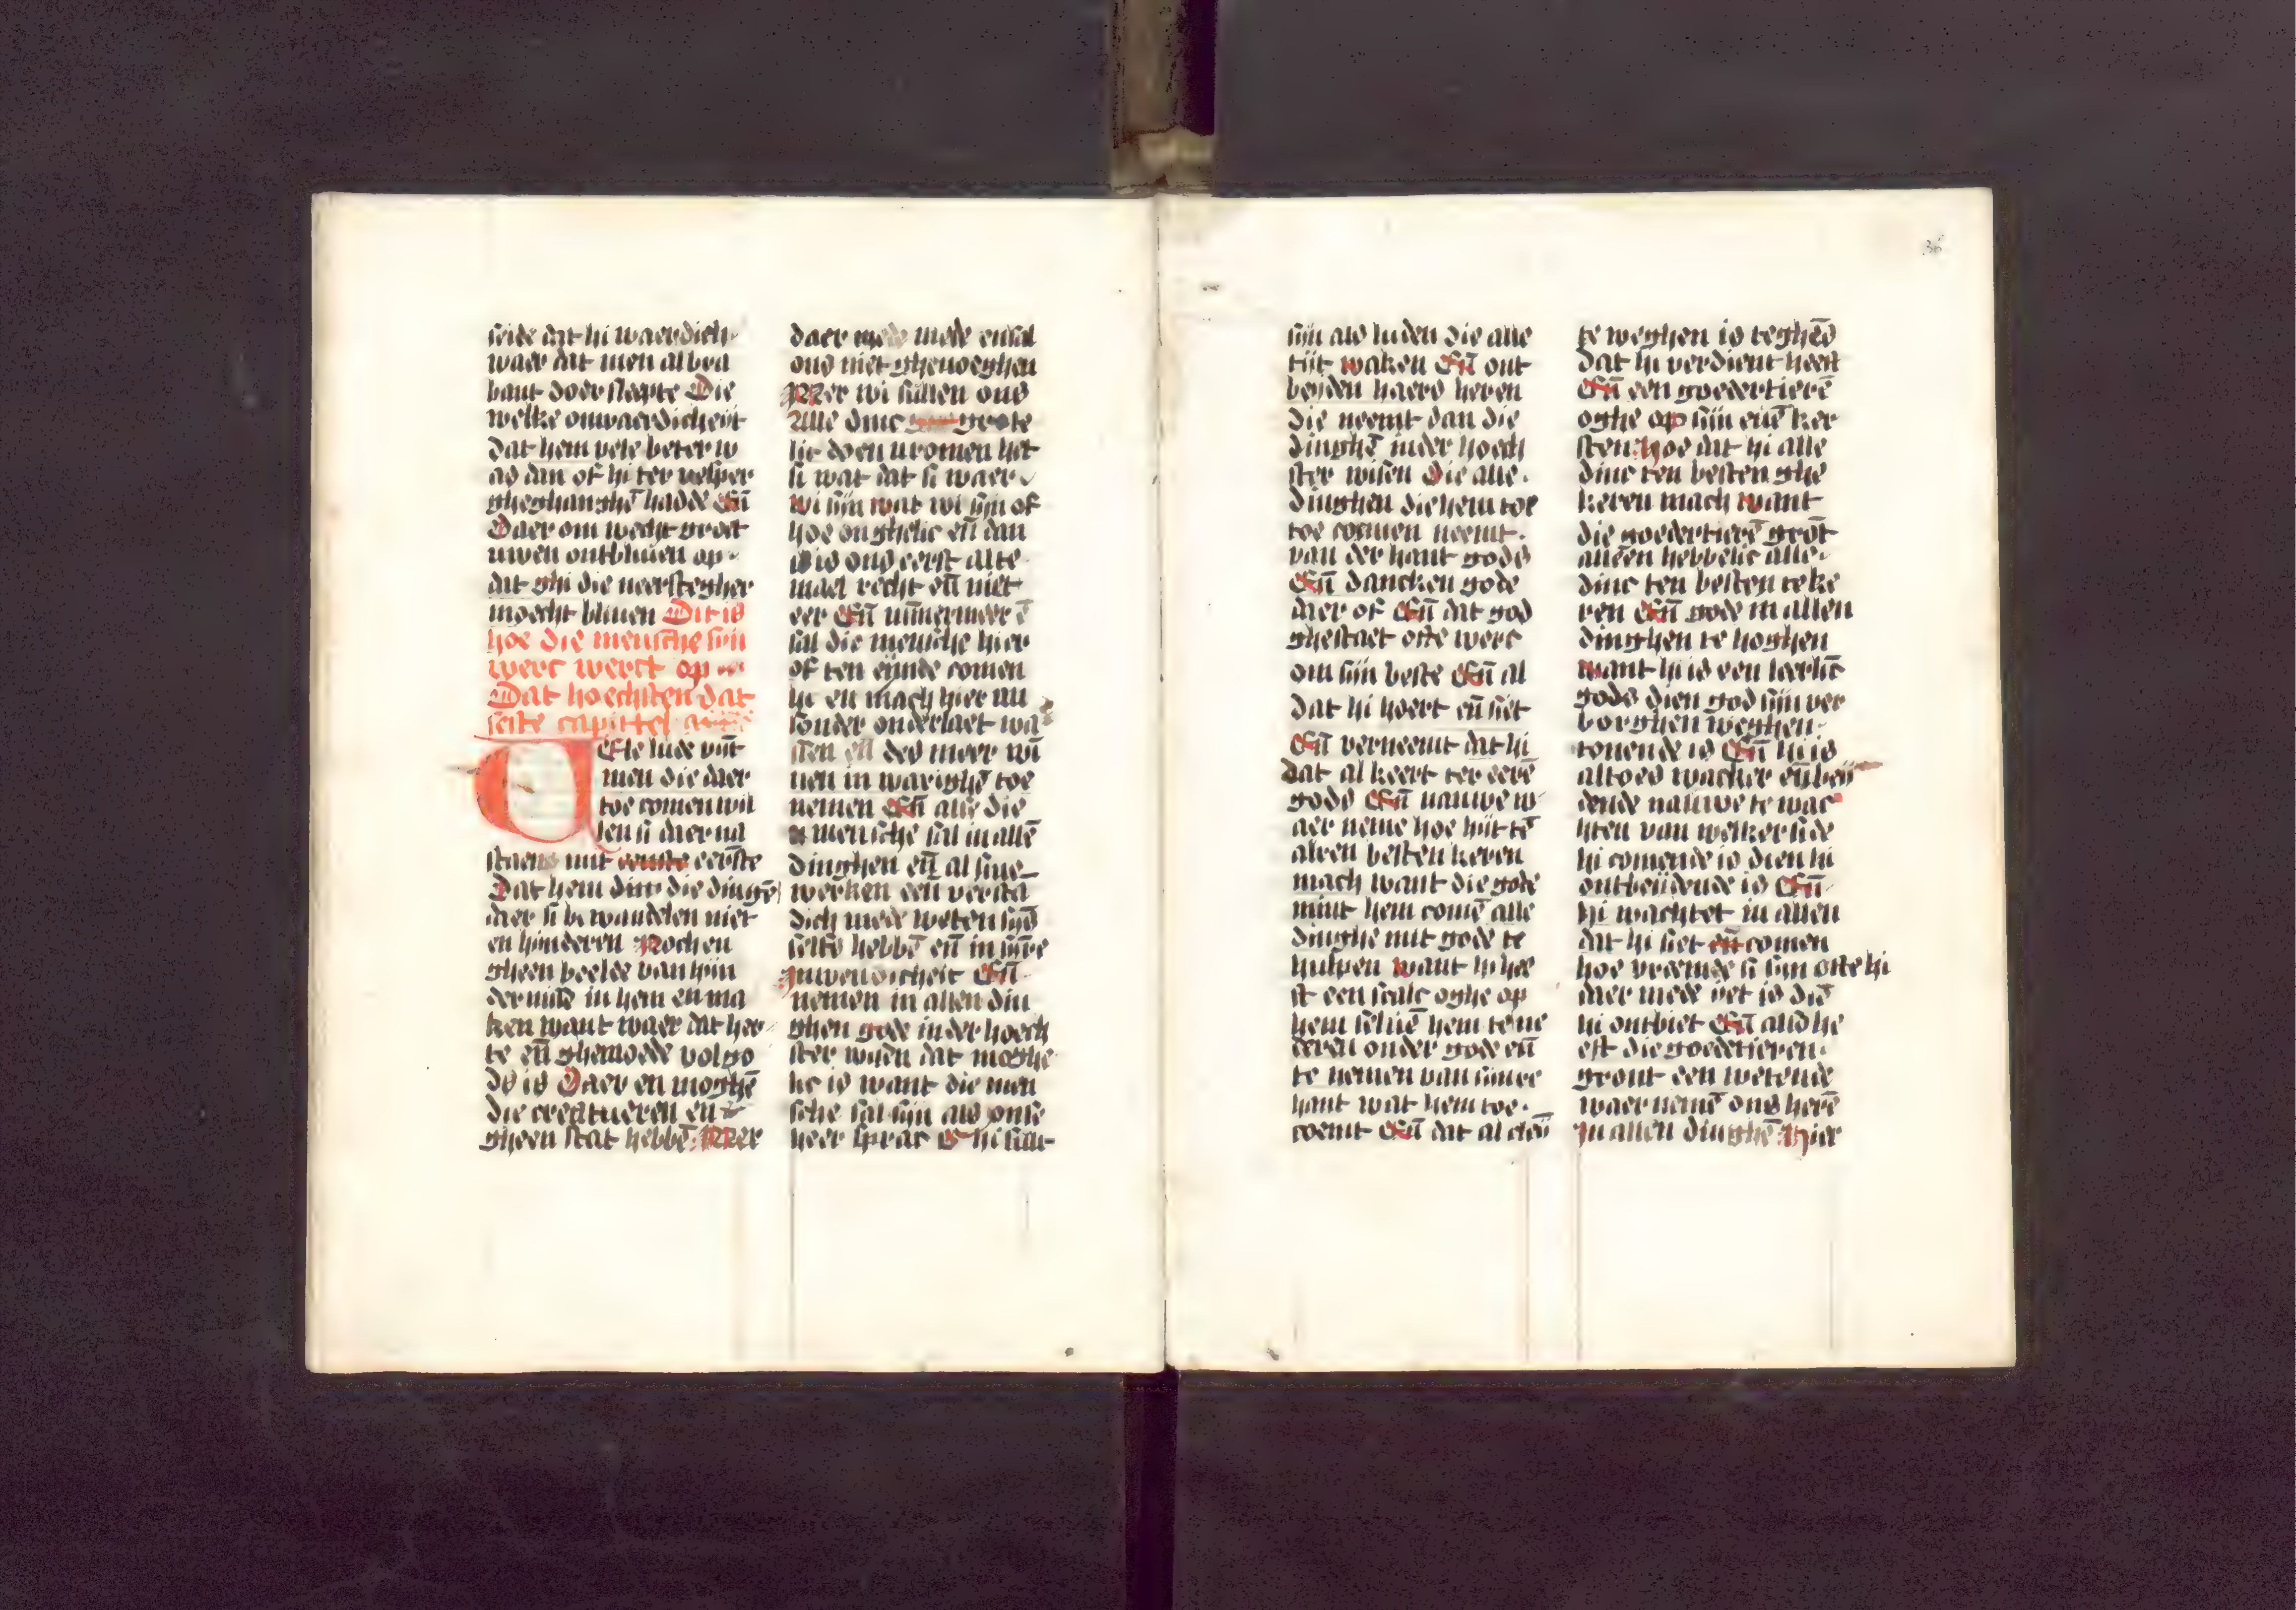 seide dat hi waerdich
waer dat men al bra
bant doer sleepte Die
welke onwaerdicheyt
dat hem vele beter w
as dan of hi ter vesper
gheghanghē hadde Eñ
Daer om wecht groet
uwen ontbliuen op
dat ghi die neerstegher
moecht bliuen Dit is
hoe die mensche sijn
werc werct op
Dat hoechsten dat
seste capittel
Vele lude vīt
men die daer
toe comen wil
len si daer na
staen mit eernste
Dat hem die dingē
daer si bi wandelen niet
en hinderen Noch en
gheen beelde van hijn
der nisse in hem en ma
ken want waer dat her
te eñ ghemoede vol go
ds is Daer en moghē
die creatueren en
gheen stat hebbē Mer
daer mede en sal
ons niet ghenoeghen
Mer wi sullen ons
Alle dinc grote
lic doen vromen het
si wat dat si waer
wi sijn wat wi sijn of
hoe onghelic eñ dan
is ons eerst alte
mael recht eñ niet
eer Eñ nūmermeer ē
sal die mensche hier
of ten eynde comen
hi en mach hier nu
sonder onderlaet wa
sen eñ des meer wī
nen in warighē toe
nemen Eñ alle die
mensche sal in allē
dinghen eñ al sine
werken een versta
dich mede weten sijs
selfs hebbē eñ in sijre
Inwendicheit Eñ
nemen in allen din
ghen gode in der hoech
ster wisen dat moghe
lic is want die men
sche sal sijn als onse
heer sprac Ghi sult
sijn als luden die alle
tijt waken Eñ ont
beyden haers heren
die neemt dan die
dinghē in der hoech
ster wisen Die alle
dinghen die hem toe
toe comen neemt
van der hant gods
Eñ dancken gode
daer of Eñ dat god
ghestaet ofte werc
om sijn beste Eñ al
dat hi hoert eñ siet
Eñ verneemt dat hi
dat al keert ter eerē
gods Eñ nauwe w
aer neme hoe hijt tē
alren besten keren
mach want die gode
mint hem comē alle
dinghe mit gode te
hulpen want hi hee
ft een scalc oghe op
hem seluē hem te ne
deren onder gode eñ
te nemen van sinre
hant wat hem toe
coemt Eñ dat al
te weghen is teghēs
dat hi verdient heeft
Eñ een goedertierē
oghe op sijn euē ker
sten hoe dat hi alle
dinc ten besten ghe
keren mach want
die goedertierē grōt
allen hebbelic alle
dinc ten besten teke
ren Eñ gode in allen
dinghen te hoghen
want hi is een leerlīc
gods dien god sijn ver
borghen weghen
tonende is Eñ hi is
altoes wacher eñ bey
dende nauwe te wac
hten van welker side
hi comende is dien hi
ontbeydende is Eñ
hi wachtet in allen
dat hi siet comen
hoe vreemde si sijn ofte hi
daer mede yet is diē
hi ontbiet Eñ aldhe
eft die goedertieren
gront een wetende
waer nemē ons herē
In allen dinghē Hier